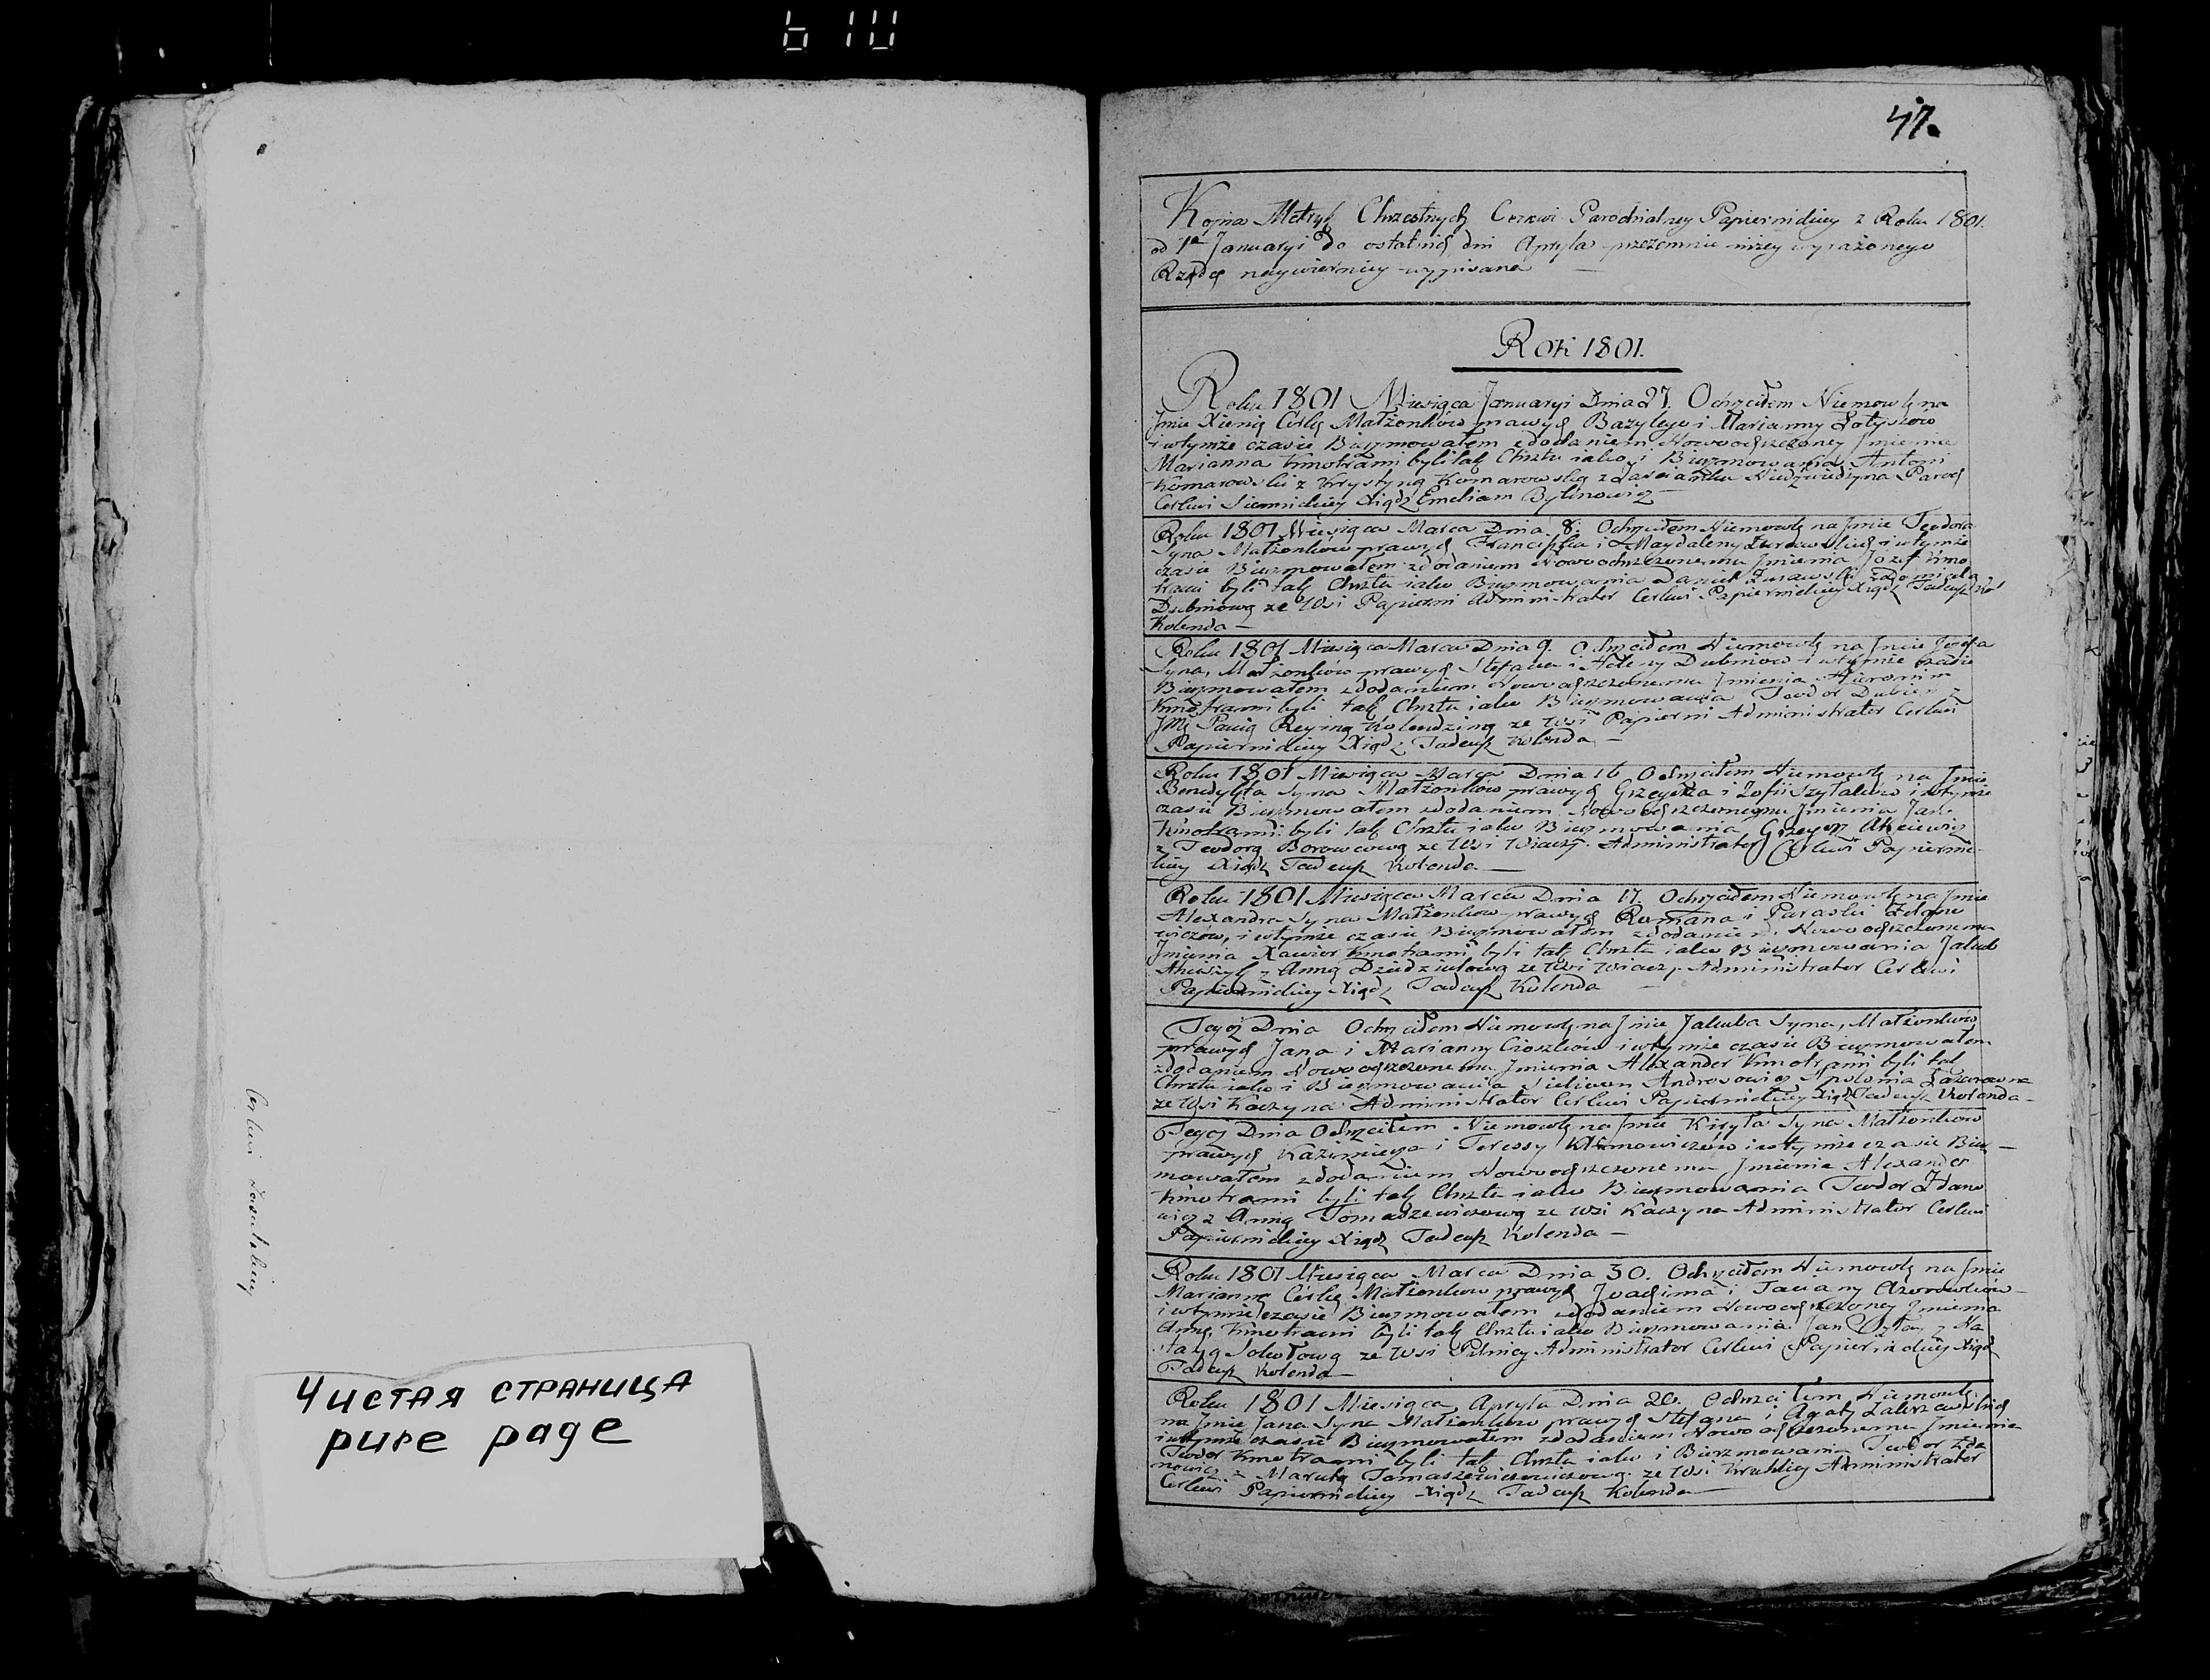 610
47.
Kopia Metryk Chrzestnych Cerkwi Parochialney Papiernickiey z Roku 1801.
od 1ª Januaryi do ostatnich dni Apryla przezemnie niżey wyrażonego
Rządcę naywierniey wypisana
Rok 1801.
Roku 1801 Miesiąca Januaryi Dnia 27. Ochrzciłem Niemowlę na
Jmie Xienię Córkę Małżonków prawych Bazylego i Marianny Łotyszów
i wtymże czasie Bierzmowałem zdodaniem Nowoochrzczoney Jmienia
Marianna Kmotrami byli tak Chrztu iako i Bierzmowania Antoni
Komarowski z Krystyną Komarowską
Cerkwi Xiądz Emilian Bylinowicz
Roku 1801 Miesiąca Marca Dnia 8. Ochrzciłem Niemowlę na Jmie Teodora
Syna Małżonków prawych Franciszka i Magdaleny Żurawskich i wtymże
czasie Bierzmowałem zdodaniem Nowoochrzczonemu Jmienia Józef Kmo
trami byli tak Chrztu iako Bierzmowania Daniel Żurawski
Dubniową ze Wsi Papierni Administrator Cerkwi Papiernickiey Xiądz Tadeusz Ko
Kolenda
Roku 1801 Miesiąca Marca Dnia 9. Ochrzciłem Niemowlę na Jmie Jozefa
Syna, Małżonków prawych Stefana i Heleny Dubniow i wtymże czasie
Bierzmowałem zdodaniem Nowoochrzczonemu Jmienia Hieronim
Kmotrami byli tak Chrztu iako Bierzmowania Teodor Dubien z
Jmę Panią Reginą Kolendziną ze Wsi Papierni Administrator Cerkwi
Papiernickiey Xiądz Tadeusz Kolenda
Roku 1801 Miesiąca Marca Dnia 16 Ochrzciłem Niemowlę na Jmie
Benedykta Syna Małżonków prawych Grzegorza i Zofii Szytaków i wtymże
czasie Bierzmowałem zdodaniem Nowoochrzczonemu Jmienia Jan
Kmotrami byli tak Chrztu iako Bierzmowania Grzegorz
z Teodorą Borowcową ze Wsi Administrator Cerkwi Papierni-
ckiey Xiądz Tadeusz Kolenda
Roku 1801 Miesiąca Marca Dnia 17. Ochrzciłem Niemowlę na Jmie
Alexandra Syna Małżonków prawych Romana i Paraski Zdano
wiczów, i wtymże czasie Bierzmowałem zdodaniem Nowoochrzczonemu
Jmienia Xawier Kmotrami byli tak Chrztu iako Bierzmowania Jakub
z Anną Dziedziulową ze Wsi Administrator Cerkwi
Papiernickiey Xiądz Tadeusz Kolenda
Tegoż Dnia Ochrzciłem Niemowlę na Jmie Jakuba Syna, Małżonków
prawych Jana i Marianny Cioszków i wtymże czasie Bierzmowałem
zdodaniem Nowoochrzczonemu Jmienia Alexander Kmotrami byli tak
Chrztu iako i Bierzmowania Androsowicz Apolonia Łazarowna
ze Wsi Kaczyna Administrator Cerkwi Papiernickiey Xiądz Tadeusz Kolenda
Tegoż Dnia Ochrzciłem Niemowlę na Jmie Kiryła Syna Małżonków
prawych Kazimierza i Teressy Klimowiczów i wtymże czasie Bierz
mowałem zdodaniem Nowoochrzczonemu Jmienia Alexander
Kmotrami byli tak Chrztu iako Bierzmowania Teodor Zdano
wicz z Anną Tomaszewiczową ze Wsi Kaczyna Administrator Cerkwi
Papiernickiey Xiądz Tadeusz Kolenda
Roku 1801 Miesiąca Marca Dnia 30. Ochrzciłem Niemowlę na Jmie
Marianne Córkę Małżonków prawych Joachima i Taciany
i wtymże czasie Bierzmowałem zdodaniem Nowoochrzczoney Jmienia
Anna, Kmotrami byli tak Chrztu iako Bierzmowania Jan z Na
stazyą Sokołową ze Wsi Administrator Cerkwi Papiernickiey Xiądz
Tadeusz Kolenda
Roku 1801 Miesiąca Apryla Dnia 20. Ochrzciłem Niemowlę
na Jmie Jana Syna Małżonków prawych Stefana i Agaty
i wtymże czasie Bierzmowałem zdodaniem Nowoochrzczonemu Jmienia
Teodor Kmotrami byli tak Chrztu iako i Bierzmowania Teodor Zda
nowicz z Ze Wsi Administrator
Cerkwi Papiernickiey Xiądz Tadeusz Kolenda
Чистая страница
pure page